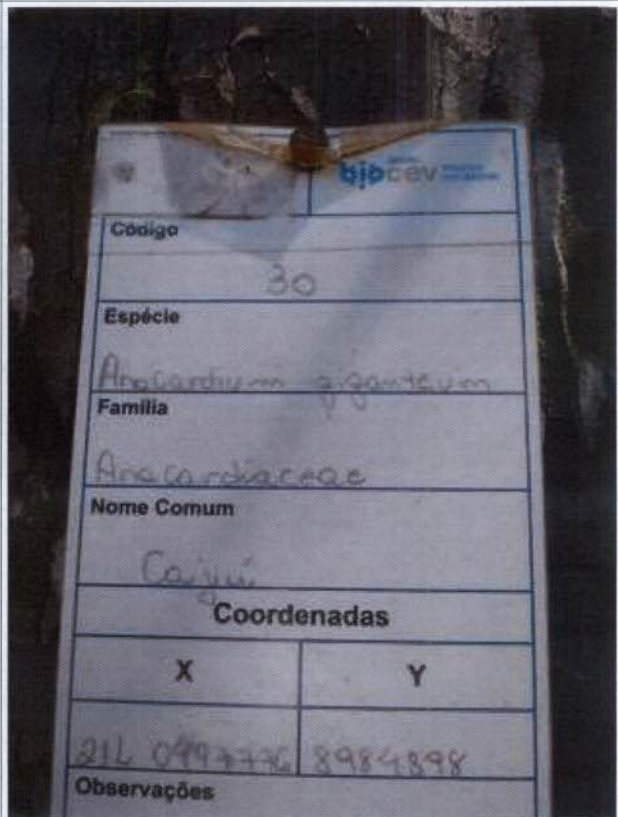 biocev
Código
30
Espécie
Anacardium giganteum
Família
Anacardiaceae
Nome Comum
Cajuí
Coordenadas
X Y
21L 0497776 8984898
Observações